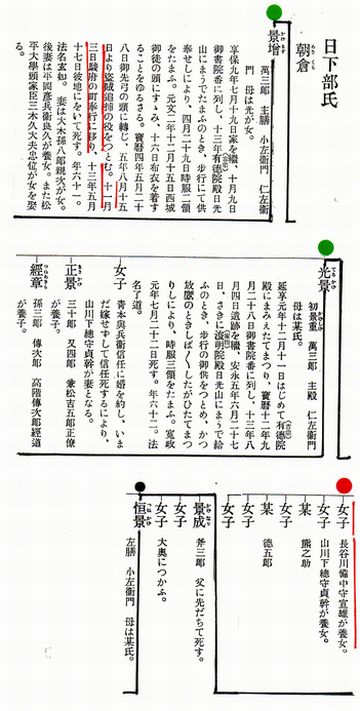 日下部氏
朝倉
あさくら
景增
かげます
萬三郎 主膳 小左衞門 仁左衞
門 母は光が女。
享保九年七月十九日家を繼、十月九日
御書院番に列し、十三年有徳院殿日光
山にまうでたまふのとき、歩行にて供
奉せしにより、四月二十九日時服二領
をたまふ。元文二年十二月十五日西城
御徒の頭にすゝみ、布衣を着す
ることをゆるさる。寶暦四年五月二十
八日御先弓の頭に轉じ、五年八月十五
日より盗賊追捕の役をつとむ。十一月
三日駿府の町奉行に移り、十三年五月
十七日彼地にをいて死す。年六十一。
法名玄如。 妻は大木孫八郎親次が女。
後妻は平岡彦兵衞良久が養女。また松
平大學頭家臣三木久大夫忠位が女を娶
る。
光景
てるかげ
初景重 萬三郎 主殿 仁左衞門
母は某氏。
延享元年十二月十一日はじめて有徳院
殿にまみえたてまつり、寶暦十二年九
月二十八日御書院番に列し、十三年八
月四日遺跡を繼、安永五年六月二十七
日、さきに浚明院殿日光山にまうで給
ふのとき、歩行の御供をつとめ、かつ
放鷹のときしば〱したがひたてまつ
りしにより、時服三領をたまふ。寬政
元年七月二十二日死す。年六十二。法
名了道。
女子
青木與兵衞信任に婚を約し、いま
だ嫁せずして信任死するにより、
山川下總守貞幹が妻となる。
正景
まさかげ
三十郎 又四郎 兼松吉五郎正僚
が養子。
經章
つねあきら
孫三郎 傳次郎 高階傳次郎經遒
が養子。
女子 長谷川備中守宣雄が養女。
女子 山川下總守貞幹が養女。
某 熊之助
女子
某 德五郎
女子
女子
景成 斧三郎 父に先だちて死す。
かげなり
女子
女子 大奥につかふ。
恒景
つねかげ
左膳 小左衞門 母は某氏。